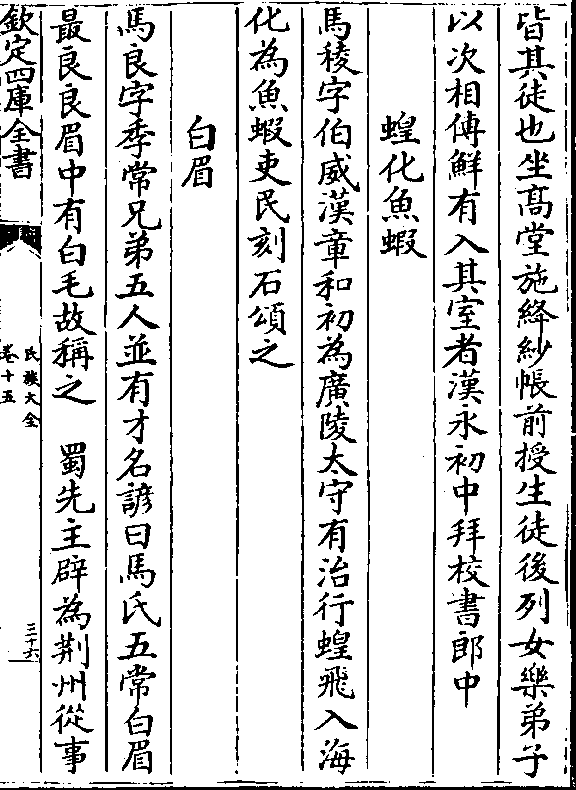 皆其徒也坐髙堂施絳紗帳前授生徒後列女樂弟子
以次相傳鮮有入其室者漢永初中拜校書郎中
蝗化魚蝦
馬稜字伯威漢章和初為廣陵太守有治行蝗飛入海
化為魚蝦吏民刻石頌之
白眉
馬良字季常兄弟五人並有才名諺曰馬氏五常白眉
最良良眉中有白毛故稱之 蜀先主辟為荆州從事
欽定四庫全書
氏族大全
卷十五
三十六